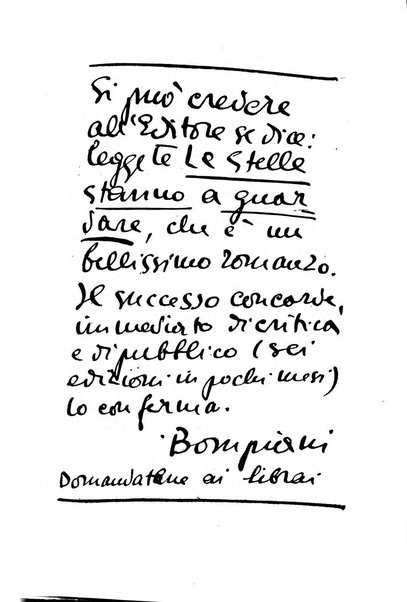 Si può credere
all'Editore se dice:
leggete Le Stelle
stanno a guar
dare, che è un
bellissimo romanzo.
Il successo concorde,
immediato di critica
e di pubblico (sei
edizioni in pochi mesi)
lo conferma.
Bompiani
Domandatene ai librai